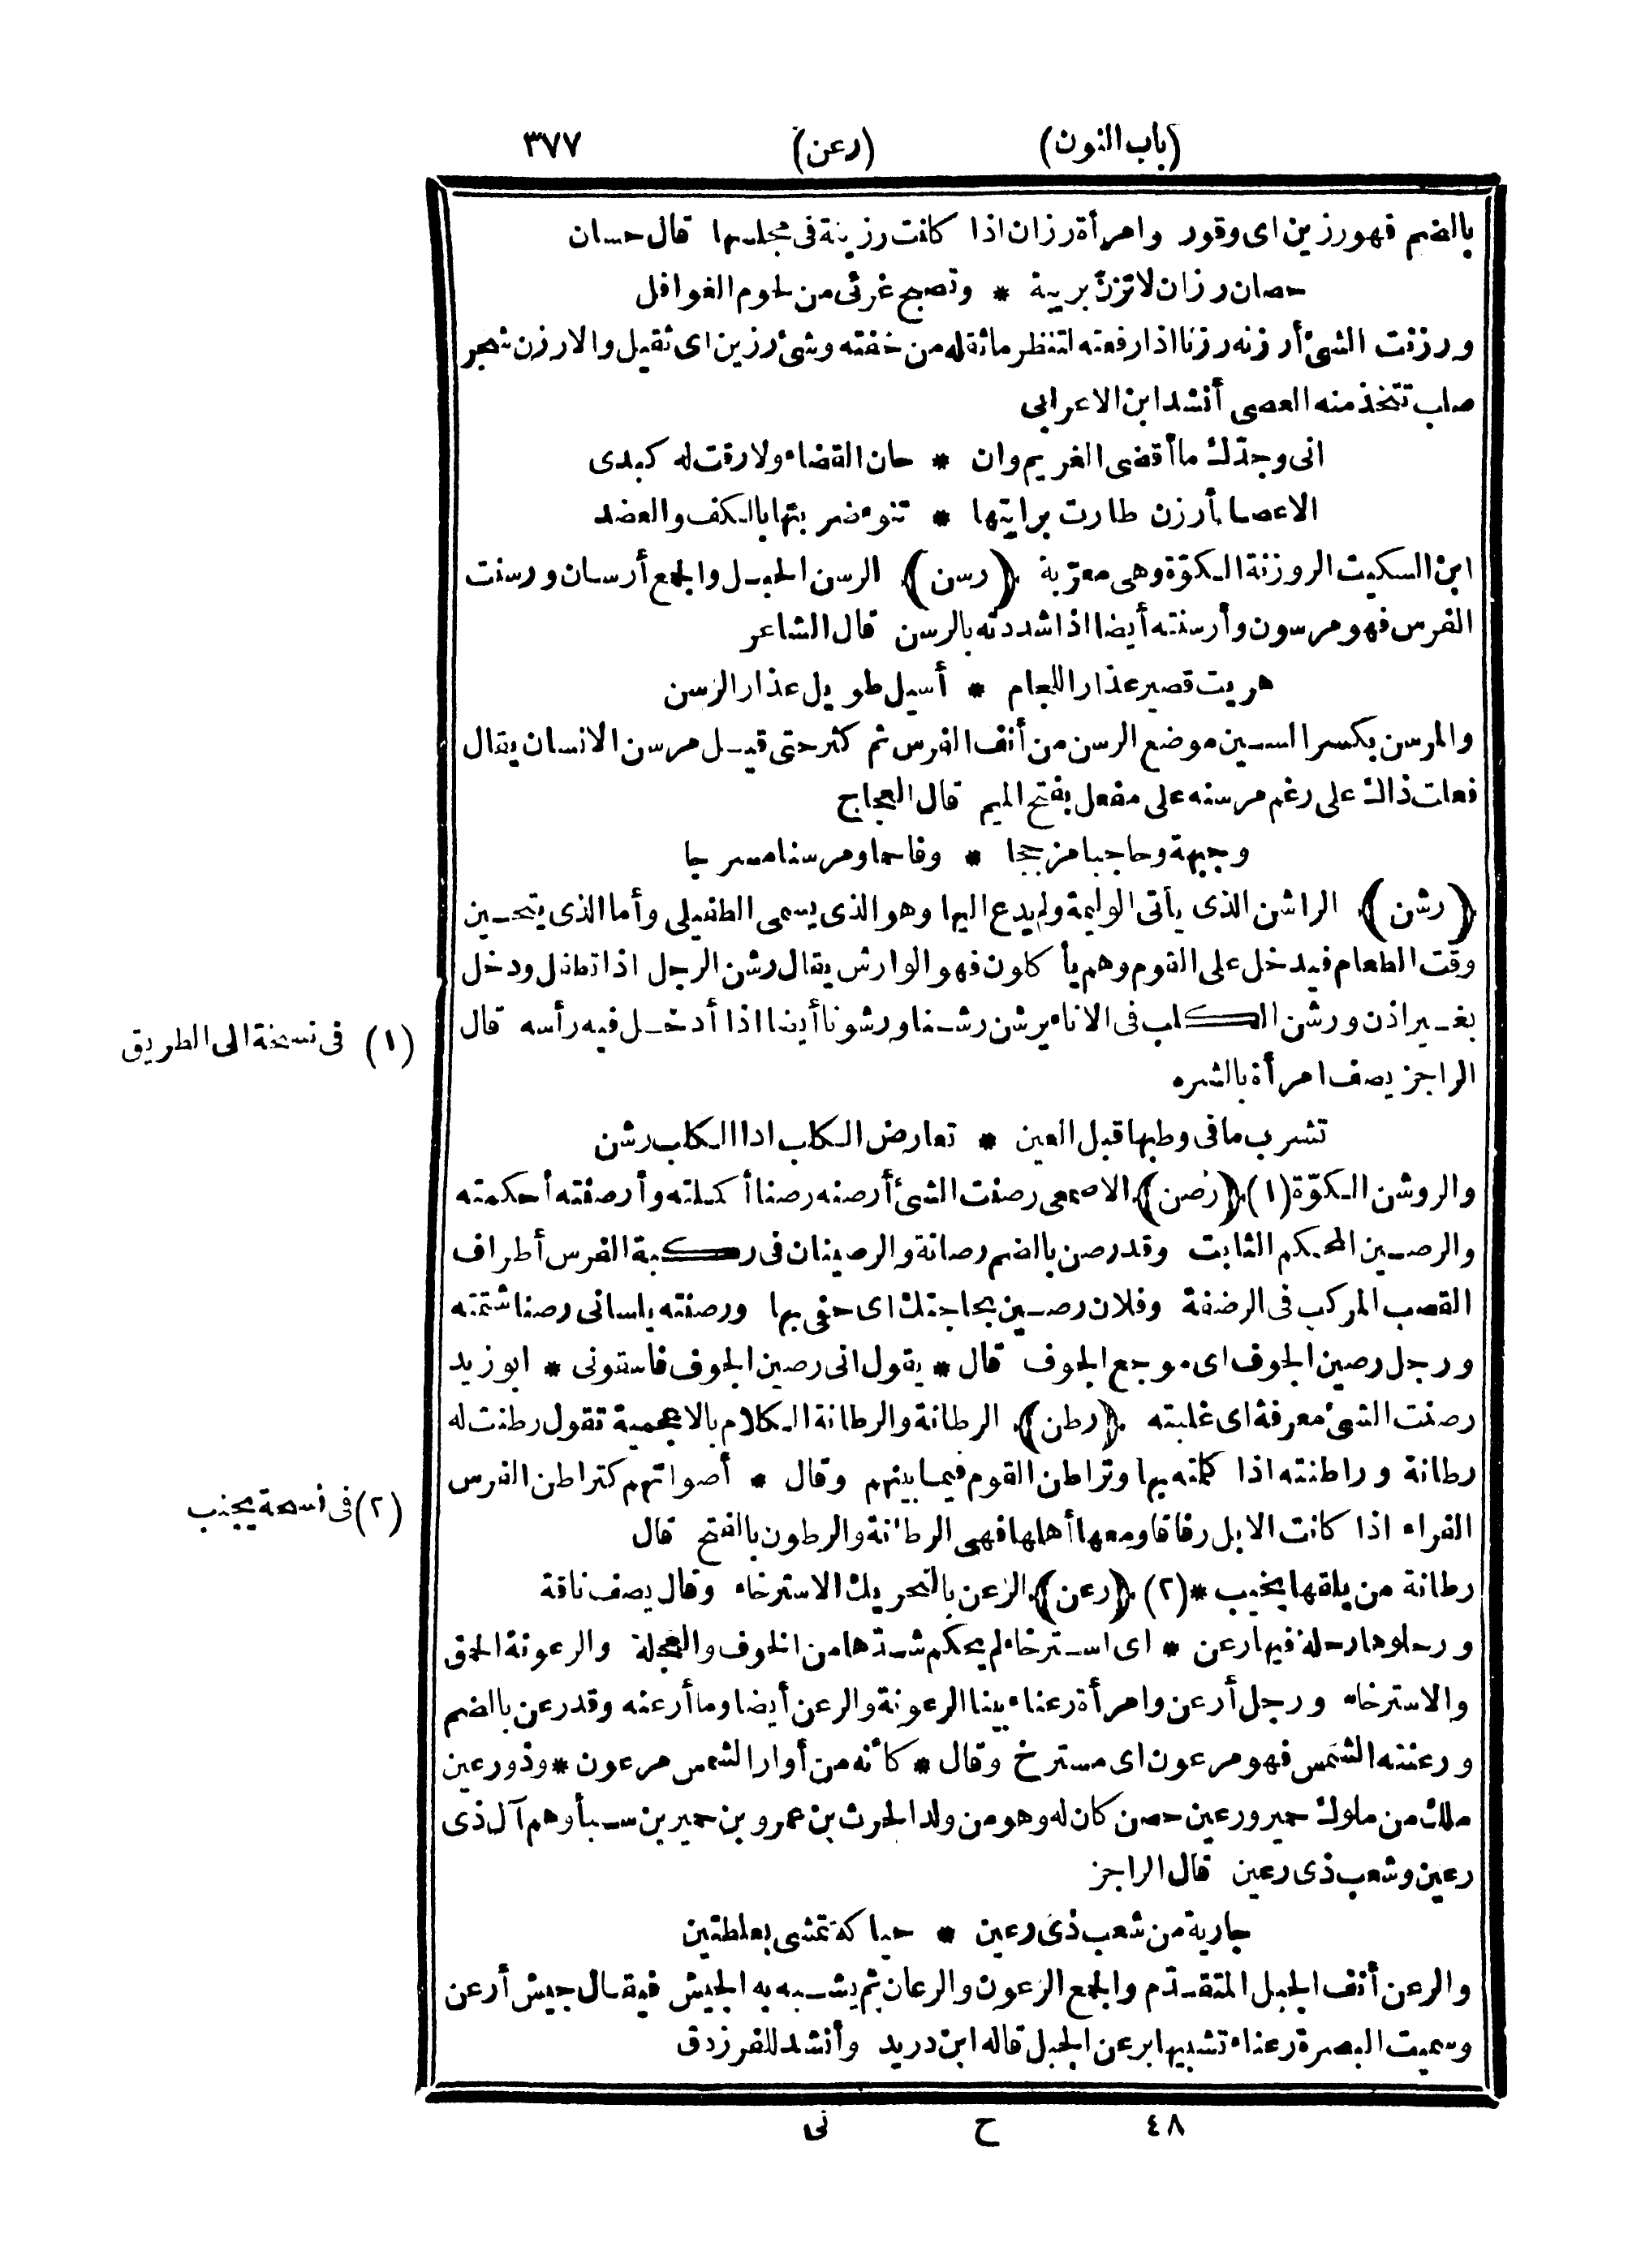 (باب النون) (رعن) ٣٧٧
بالضم فهو رزين اى وقور وامرأة رزان اذا كانت رزينة فى مجلسها قال حسان
حصان رزان لا تزنّ بريبة * وتصبح غرثى من لحوم الغوافل
ورزنت الشئ أرزنه رزنا اذا رفعته لتنظر ما ثقله من خفته وشئ رزين اى ثقيل والارزن شجر
صلب تتخذ منه العصى أنشد ابن الاعرابى
انى وجدّك ما أقضى الغريم وان * حان القضاء ولا رقت له كبدى
الا عصا أرزن طارت برايتها * تنوء ضربتها بالكف والعضد
ابن السكيت الروزنة الكوّة وهى معرّبة ﴿رسن﴾ الرسن الحبل والجمع أرسان ورسنت
الفرس فهو مرسون وأرسنته أيضا اذا شددته بالرسن قال الشاعر
هريت قصير عذار اللجام * أسيل طويل عذار الرسن
والمرسن بكسر السين موضع الرسن من أنف الفرس ثم كثر حتى قيل مرسن الانسان يقال
فعلت ذلك على رغم مرسنه على مفعل بفتح الميم قال العجاج
وجبهة وحاجبا مزججا * وفاحما ومرسنا مسرجا
﴿رشن﴾ الراشن الذى يأتى الوليمة ولم يدع اليها وهو الذى يسمى الطفيلى وأما الذى يتحين
وقت الطعام فيدخل على القوم وهم يأكلون فهو الوارش يقال رشن الرجل اذا تطفل ودخل
بغير اذن ورشن الكلب فى الاناء يرشن رشنا ورشونا أيضا اذا أدخل فيه رأسه قال
الراجز يصف امرأة بالشره
تشرب ما فى وطبها قبل العين * تعارض الكلب اذا الكلب رشن
والروشن الكوّة (١) ﴿رصن﴾ الاصمعى رصنت الشئ أرصنه رصنا أكملته وأرصنته أحكمته
والرصين المحكم الثابت وقد رصن بالضم رصانة والرصينان فى ركبة الفرس أطراف
القصب المركب فى الرضفة وفلان رصين بحاجتك اى حفى بها ورصنته بلسانى رصنا شتمته
ورجل رصين الجوف اى موجع الجوف قال * يقول انى رصين الجوف فاسقونى * ابو زيد
رصنت الشئ معرفة اى غلبته ﴿رطن﴾ الرطانة والرطانة الكلام بالاعجمية تقول رطنت له
رطانة وراطنته اذا كلمته بها وتراطن القوم فيما بينهم وقال * أصواتهم كتراطن الفرس
الفراء اذا كانت الابل رفاقا ومعها أهلها فهى الرطّانة والرطون بالفتح قال
رطانة من يلقها يخيب * (٢) ﴿رعن﴾ الرعن بالتحريك الاسترخاء وقال يصف ناقة
ورحلوها رحلة فيها رعن * اى استرخاء لم يحكم شدّها من الخوف والعجلة والرعونة الحمق
والاسترخاء ورجل أرعن وامرأة رعناء بينا الرعونة والرعن أيضا وما أرعنه وقد رعن بالضم
ورعنته الشمس فهو مرعون اى مسترخ وقال * كأنه من أوار الشمس مرعون * وذو رعين
ملك من ملوك حمير ورعين حصن كان له وهو من ولد الحرث بن عمرو بن حمير بن سبأ وهم آل ذى
رعين وشعب ذى رعين قال الراجز
جارية من شعب ذى رعين * حياكة تمشى بعلطتين
والرعن أنف الجبل المتقدّم والجمع الرعون والرعان ثم يشبه به الجيش فيقال جيش أرعن
وسميت البصرة رعناء تشبيها برعن الجبل قاله ابن دريد وأنشد للفرزدق
(١) فى نسخة الى الطريق
(٢) فى نسخة يجنب
٤٨ ح نى